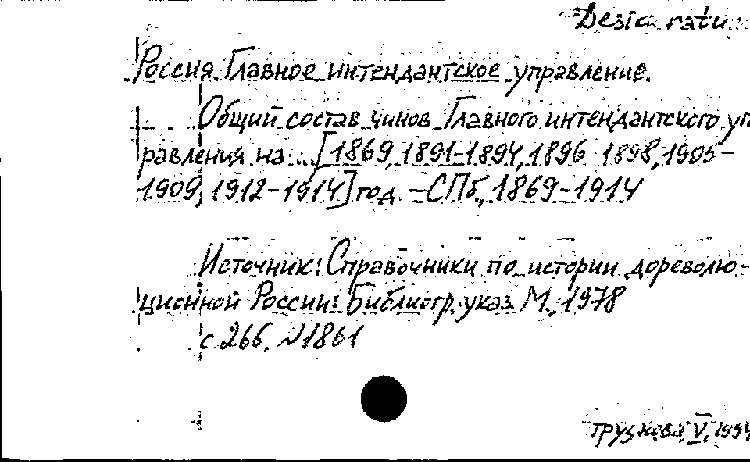 Desiderata
Россия. Главное интендантское управление.
Общий состав чинов Главного интендантского уп
равления на... [1869, 1891-1894, 1896, 1898, 1905-
1909, 1912-1914] год. – СПб., 1869-1914
Источник: Справочники по истории дореволю-
ционной России: Библиогр. указ. М., 1978
с 266. №1861
V, 1994